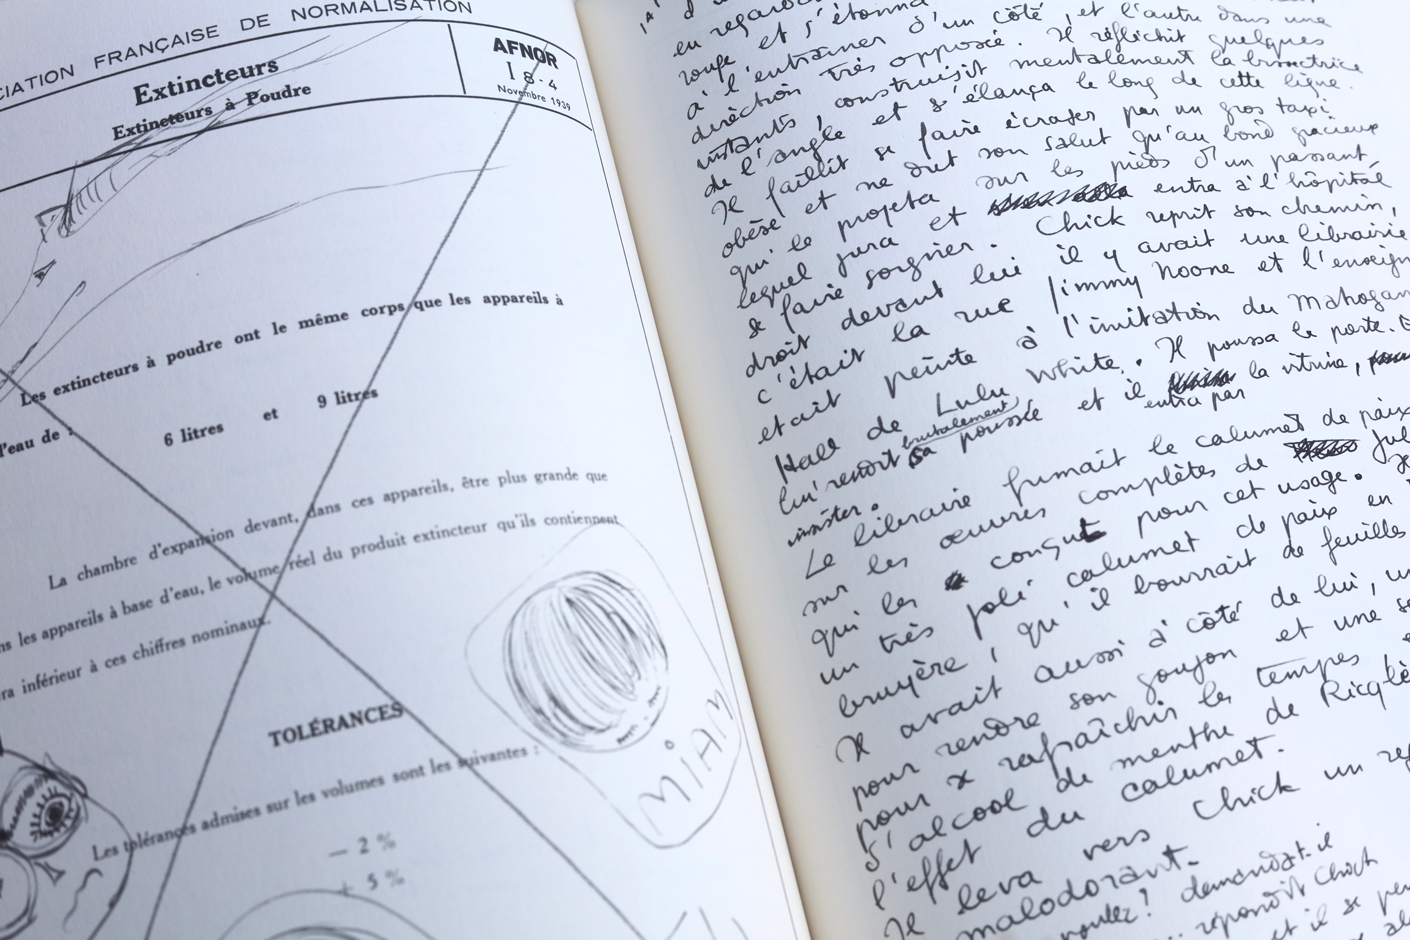 CIATION FRANÇAISE DE NORMALISATION
Extincteurs
Extincteurs à Poudre
AFNOR
I 8-4
Novembre 1939
Les extincteurs à poudre ont le même corps que les appareils à
d'eau de :
6 litres et 9 litres
La chambre d'expansion devant, dans ces appareils, être plus grande que
ns les appareils à base d'eau, le volume réel du produit extincteur qu'ils contiennent
ra inférieur à ces chiffres nominaux.
TOLÉRANCES
Les tolérances admises sur les volumes sont les suivantes :
— 2 %
+ 5 %
MIAM
en regardant
rouge et s'étonna
à l'entraîner d'un côté, et l'autre dans une
direction très opposée. Il réfléchit quelques
instants, construisit mentalement la bissectrice
de l'angle et s'élança le long de cette ligne.
Il faillit se faire écraser par un gros taxi
obèse et ne dut son salut qu'au bond gracieux
qui le projeta sur les pieds d'un passant,
lequel jura et entra à l'hôpital
se faire soigner. Chick reprit son chemin,
droit devant lui il y avait une librairie
c'était la rue Jimmy Noone et l'enseign
était peinte à l'imitation du Mahogan
Hall de Lulu White. Il poussa la porte.
brutalement
lui rendit sa poussée et il entra par la vitrine,
insister.
Le libraire fumait le calumet de paix
sur les œuvres complètes de Jul
qui les a conçut pour cet usage.
un très joli calumet de paix en
bruyère, qu'il bourrait de feuilles
Il avait aussi à côté de lui, un
pour rendre son goujon et une se
pour x rafraîchir les tempes
d'alcool de menthe de Ricqlè
l'effet du calumet.
Il leva vers Chick un reg
malodorant.
voulez? demanda-t-il
répondit Chick
et il se